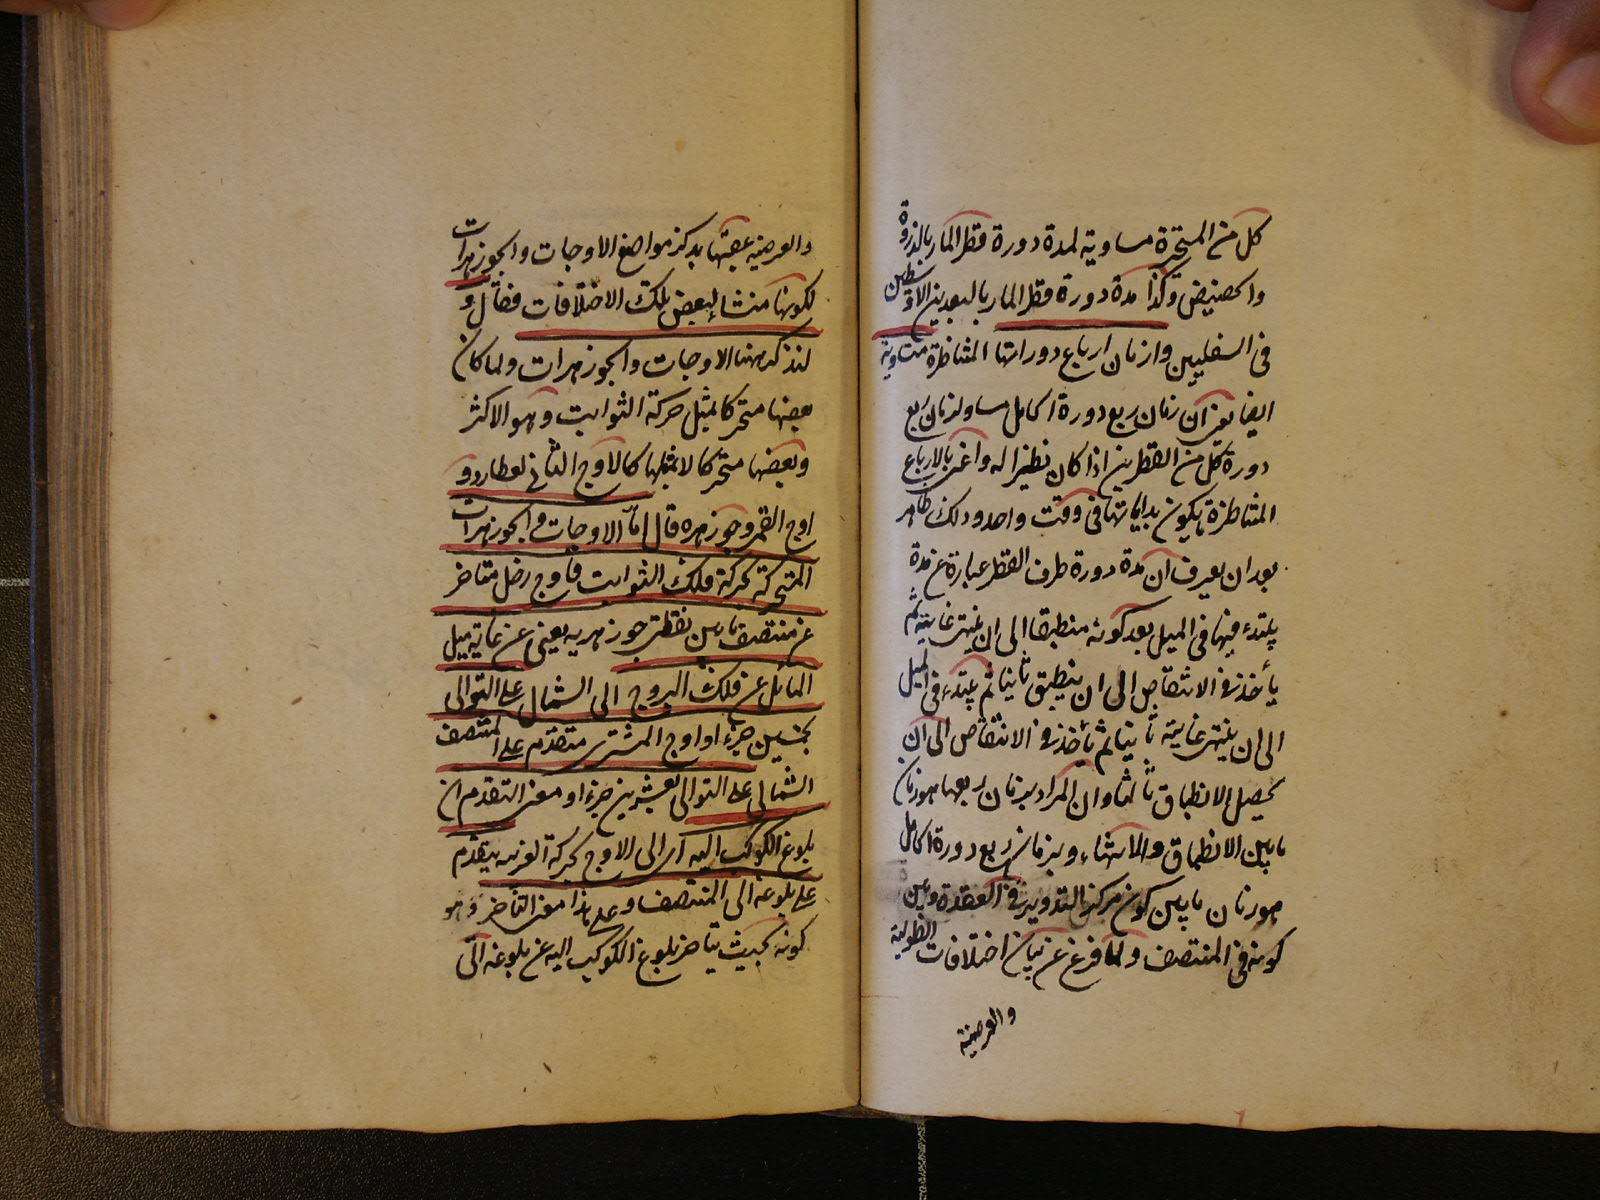 كل من المتحيرة مساوية لمدة دورة قطر المار بالذروة
والحضيض وكذا مدة دورة قطر المار بالبعدين الاوسطين
فى السفليين وازمان ارباع دوراتها المتناظرة متساوية
ايضا يعنى ان زمان ربع دورة الحامل مساو لزمان ربع
دورة كل من القطرين اذا كان نظيرا له واعنى بالارباع
المتناظرة ما يكون بداياتها فى وقت واحد وذلك ظاهر
بعد ان يعرف ان مدة دورة طرف القطر عبارة عن مدة
يبتدء فيها فى الميل بعد كونه منطبقا الى ان ينتهى غايته ثم
يأخذ فى الانتقاص الى ان ينطبق ثانيا ثم يبتدء فى الميل
الى ان ينتهى غايته ثانيا ثم يأخذ فى الانتقاص الى ان
يحصل الانطباق ثالثا وان المراد بزمان ربعها هو زمان
ما بين الانطباق والانتهاء وبزمان ربع دورة الحامل
هو زمان ما بين كون مركز التدوير فى العقدة وبين
كونه فى المنتصف ولما فرغ عن بيان اختلافات الطولية
والعرضية
والعرضية عقبها بذكر مواضع الاوجات والجوزهرات
لكونها منشاء لبعض تلك الاختلافات فقال و
لنذكر ههنا الاوجات والجوزهرات ولما كان
بعضها متحركا بمثل حركة الثوابت وهو الاكثر
وبعضها متحركا لا بمثلها كالاوج الثانى لعطارد و
اوج القمر وجوزهره قال اما الاوجات والجوزهرات
المتحركة بحركة فلك الثوابت فاوج زحل متاخر
عن منتصف ما بين نقطتى جوزهريه يعنى عن غاية ميل
المائل عن فلك البروج الى الشمال على التوالى
بخمسين جزءا واوج المشترى متقدم على المنتصف
الشمالى على التوالى بعشرين جزءا ومعنى التقدم ان
بلوغ الكوكب اليه اى الى الاوج بحركة الغربية يتقدم
على بلوغه الى المنتصف وعلى هذا معنى التأخر وهو
كونه بحيث يتاخر بلوغ الكوكب اليه عن بلوغه الى